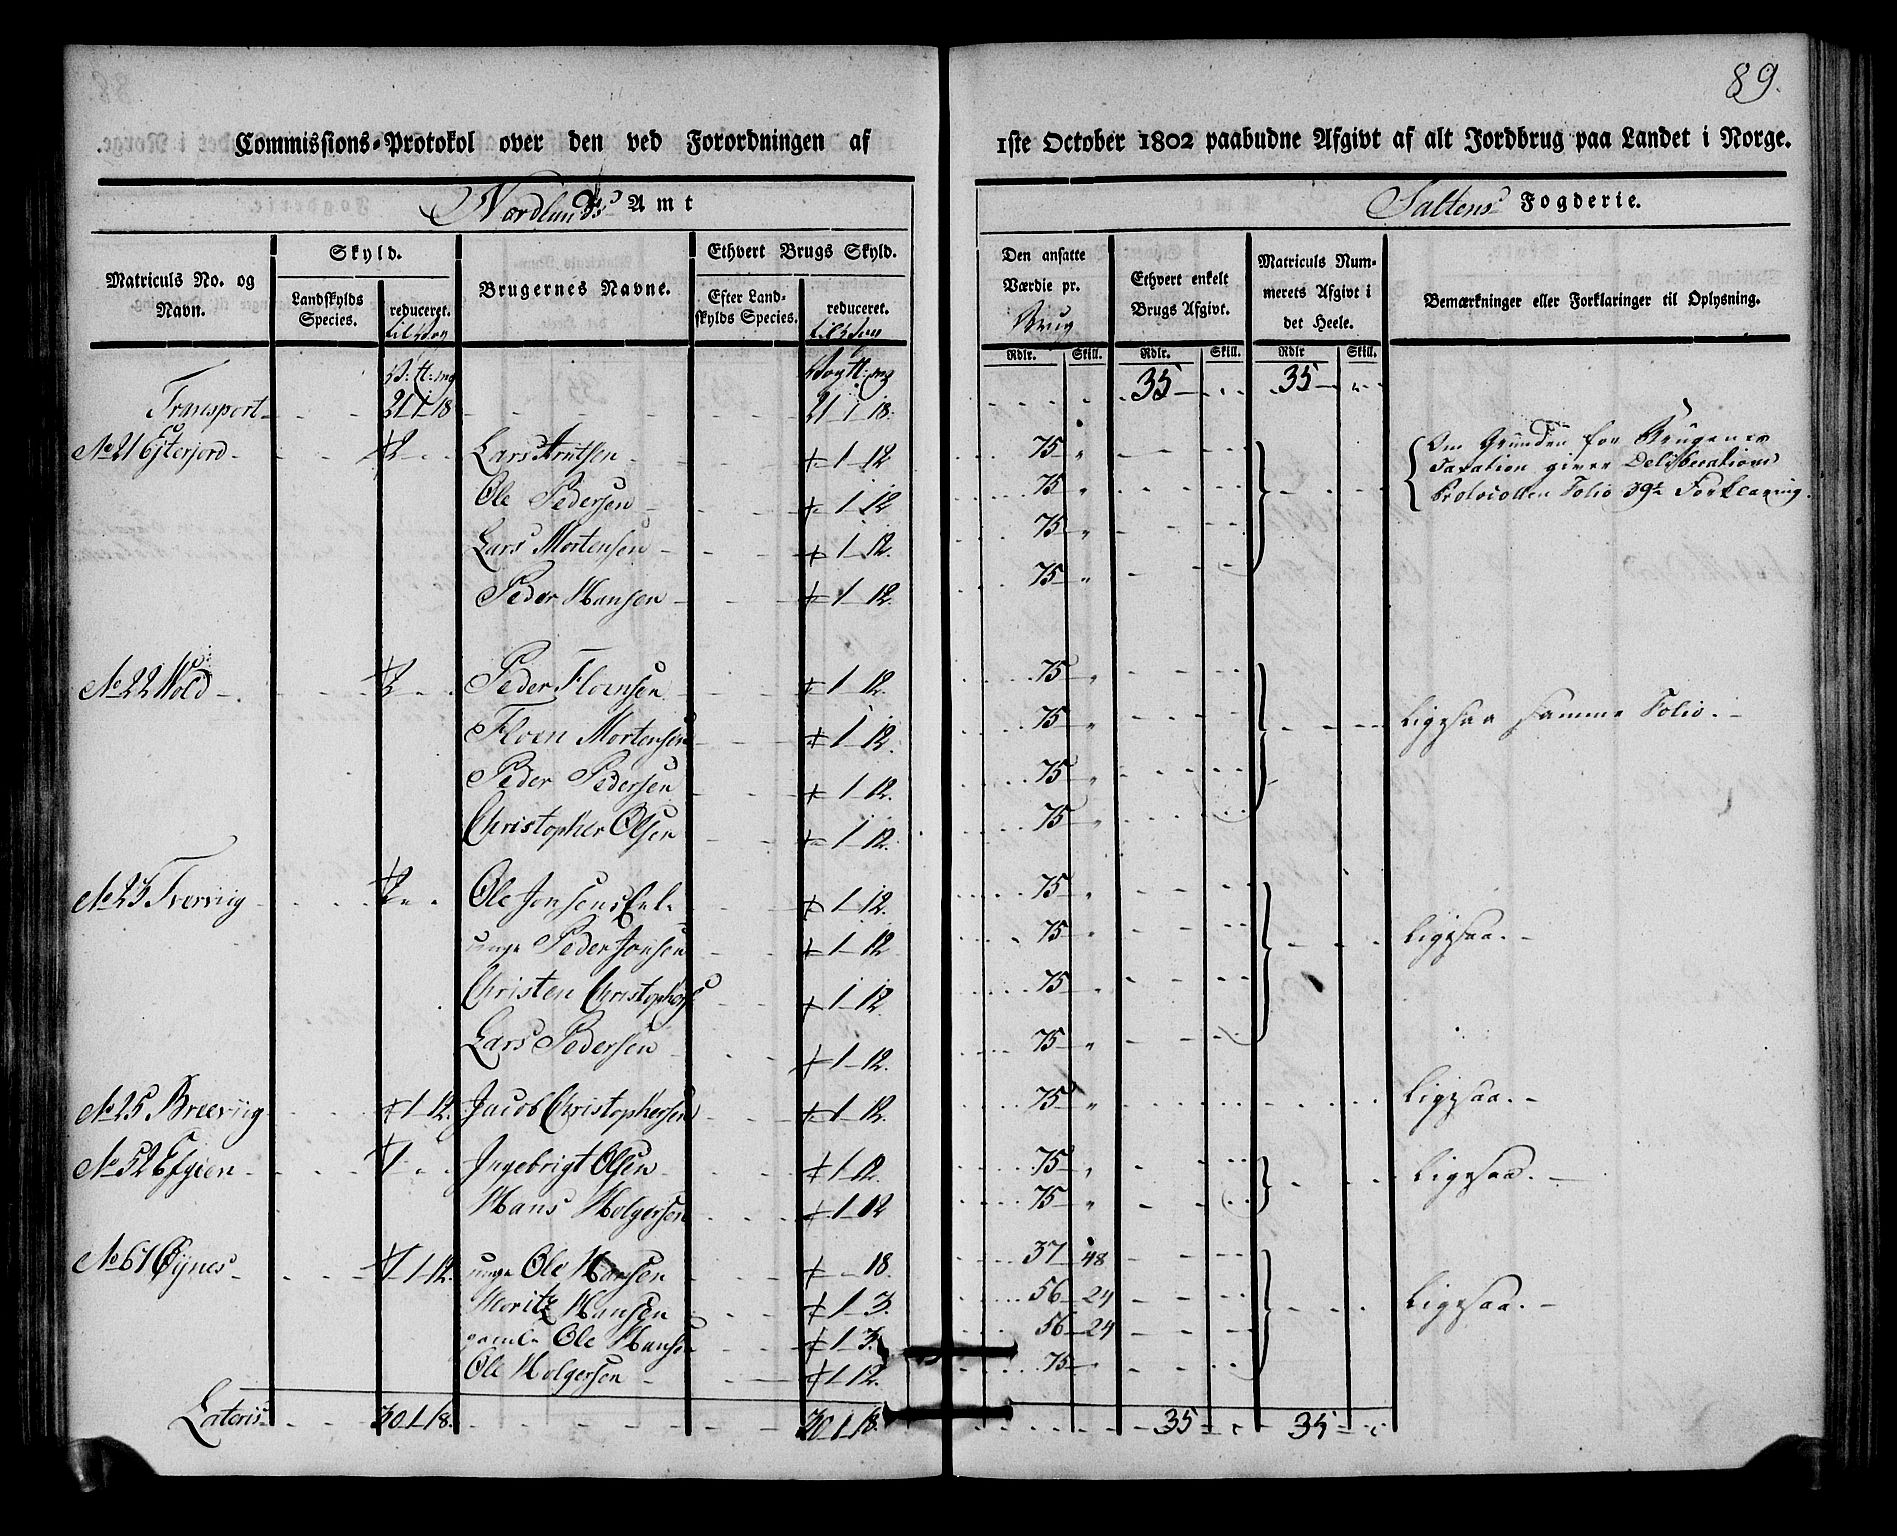 89.
Commissions-Protokol over den ved Forordningen af 1ste October 1802 paabudne Afgivt af alt Jordbrug paa Landet i Norge.
Nordlands Amt
Saltens Fogderie.
Matriculs No. og Navn.
Skyld.
Landskylds Species.
reduceret.
Brugernes Navne.
Ethvert Brugs Skyld.
Efter Landskylds Species.
reduceret.
Den ansatte Værdie pr. Brug
Ethvert enkelt Brugs Afgivt.
Matriculs Nummerets Afgivt i det Heele.
Bemærkninger eller Forklaringer til Oplysning.
Rdlr. Skill. Rdlr. Skill. Rdlr Skill.
Transport 21 1 18 21 1 18. 35 35
No 21 Ejterjord 2 Lars Arntsen 1 12 75 Om Grunden for Brugenes
Ole Pedersen 1 12 75 Taxation giver Deliberations
Lars Mortensen 1 12. 75 Protocollen Folio 39te Forklaring.
Peder Hansen 1 12. 75
No 22 Wold 2 Peder Floensen 1 12. 75
Floen Mortensen 1 12. 75 Ligesaa samme Folio.
Peder Pedersen 1 12. 75
Christopher Olsen 1 12. 75
No 23 Tverviig 2 Ole Jonsens Enke 1 12. 75
unge Peder Jonsen 1 12 75 Ligesaa.
Christen Christophers 1 12 75
Lars Pedersen 1 12. 75
No 25 Breeviig 1 12. Jacob Christophersen 1 12. 75 Ligesaa.
No 52 Efgien 1 Ingebrigt Olsen 1 12. 75 Ligesaa.
Hans Holgersen 1 12 75
No 61 Øynes 1 1 12. unge Ole Hansen 18. 37 48
Moritz Hansen 1 3. 56 24 Ligesaa.
gamle Ole Hansen 1 3. 56 24
Ole Holgersen 1 12. 75
Lateris 30 1 18. 30 1 18. 35 35